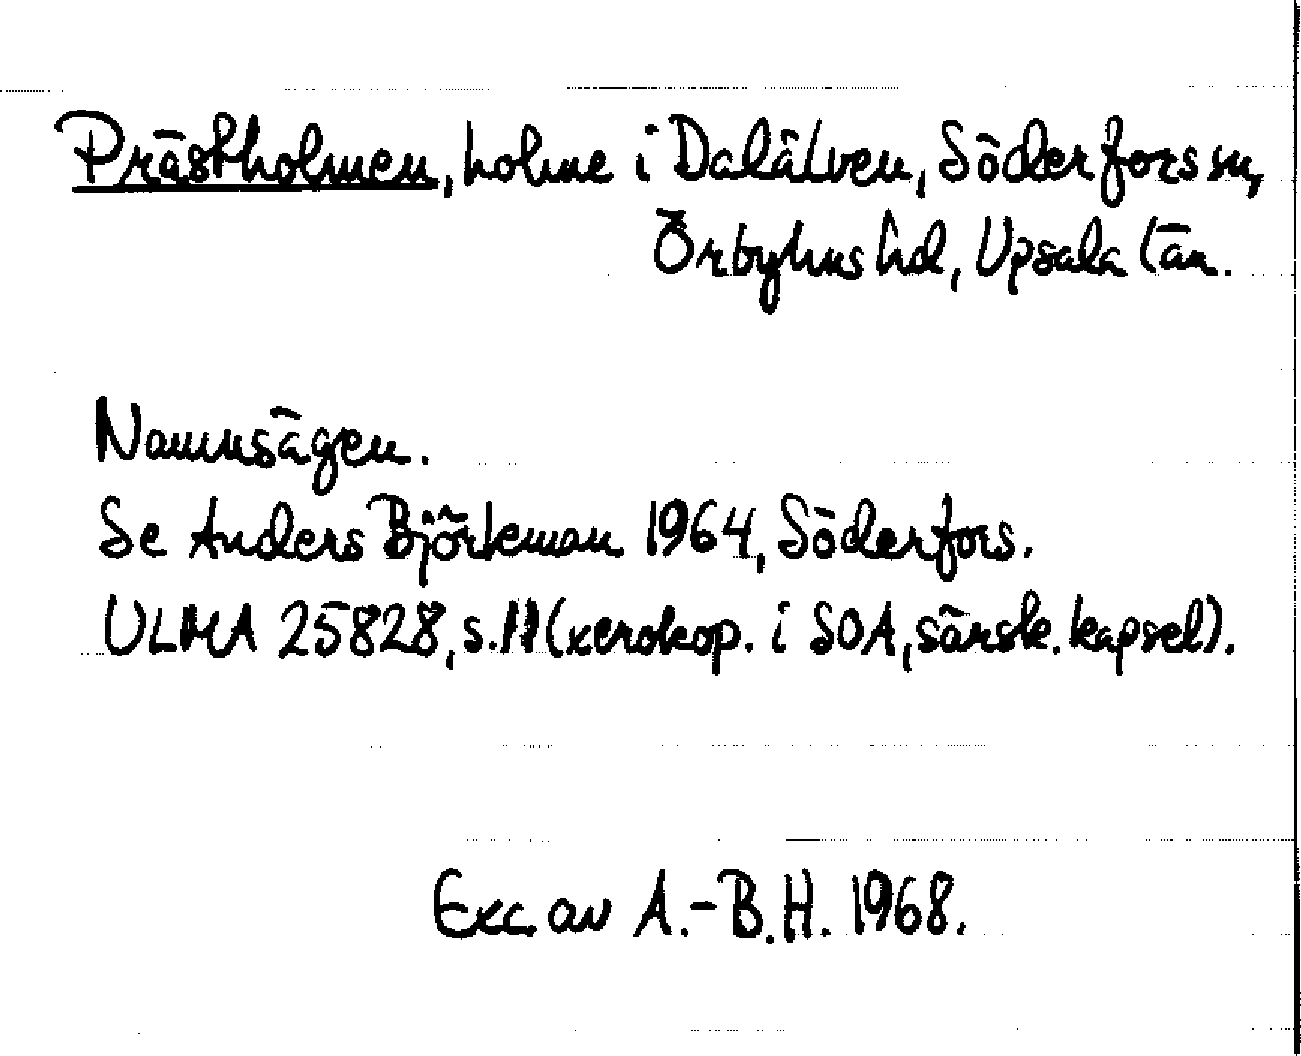 Prästholmen, holme i Dalälven, Söderfors sn,
Örbyhus hd, Upsala län.
Namnsägen.
Se Anders Björkman 1964, Söderfors.
ULMA 25828, s. 11 (xerokop. i SOA, särsk. kapsel).
Exc. av A.-B.H. 1968.